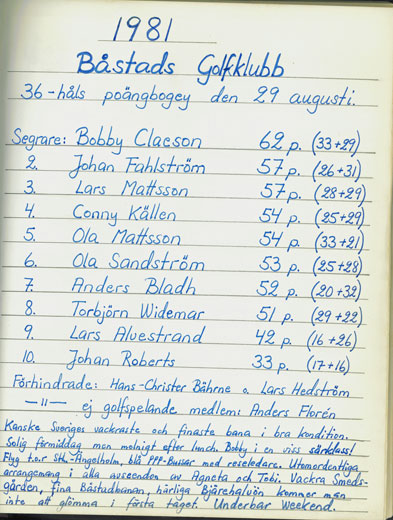 1981
Båstads Golfklubb
36-håls poängbogey den 29 augusti.
Segrare: Bobby Claeson 62 p. (33+29)
2. Johan Fahlström 57 p. (26+31)
3. Lars Mattsson 57 p. (28+29)
4. Conny Källen 54 p. (25+29)
5. Ola Mattsson 54 p. (33+21)
6. Ola Sandström 53 p. (25+28)
7. Anders Bladh 52 p. (20+32)
8. Torbjörn Widemar 51 p. (29+22)
9. Lars Alvestrand 42 p. (16+26)
10. Johan Roberts 33 p. (17+16)
Förhindrade: Hans-Christer Båhrne o. Lars Hedström
—"— ej golfspelande medlem: Anders Florén
Kanske Sveriges vackraste och finaste bana i bra kondition.
Solig förmiddag men molnigt efter lunch. Bobby i en viss särklass!
Flyg t.o.r Sthlm-Ängelholm, blå PPP-Bussar med reseledare. Utomordentliga
arrangemang i alla avseenden av Agneta och Tobi. Vackra Smeds-
gården, fina Båstadbanan, härliga Bjärehalvön kommer man
inte att glömma i första taget. Underbar Weekend.